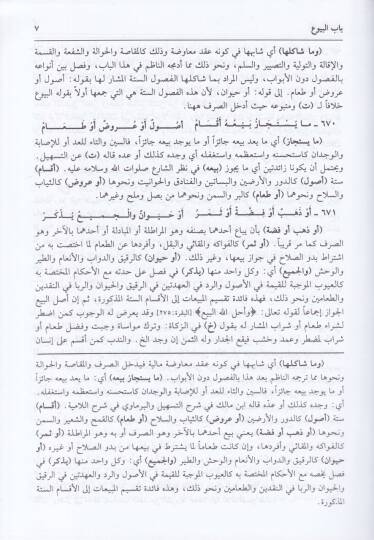 باب البيوع ٧
(وما شاكلها) أي شابهها في كونه عقد معاوضة وذلك كالمقاصة والحوالة والشفعة والقسمة
والإقالة والتولية والتصيير والسلم، ونحو ذلك مما أدمجه الناظم في هذا الباب، وفصل بين أنواعه
بالفصول دون الأبواب، وليس المراد بما شاكلها الفصول الستة المشار لها بقوله: أصول أو
عروض أو طعام. إلى قوله: أو حيوان، لأن هذه الفصول الستة هي التي جمعها أولاً بقوله البيوع
خلافاً لـ (ت) ومتبوعه حيث أدخل الصرف ههنا.
٦٧٠ ـ ما يستجاز بيعه أقسام أصول أو عروض أو طعام
(ما يستجاز) أي ما يعد بيعه جائزاً أو ما يوجد بيعه جائزاً، فالسين والتاء للعد أو للإصابة
والوجدان كاستحسنه واستعظمه واستغفله أي وجده كذلك أو عده قاله (ت) عن التسهيل.
ويحتمل أن يكونا زائدتين أي ما يجوز (بيعه) في نظر الشارع صلوات الله وسلامه عليه. (أقسام)
ستة (أصول) كالدور والأرضين والبساتين والفنادق والحوانيت ونحوها (أو عروض) كالثياب
والسلاح ونحوها (أو طعام) كالبر والسمن ونحوهما من بصل وملح وغيرهما.
٦٧١ ـ أو ذهب أو فضة أو ثمر أو حيوان والجميع يذكر
(أو ذهب أو فضة) بأن يباع أحدهما بصنفه وهو المراطلة أو المبادلة أو أحدهما بالآخر وهو
الصرف كما مر قريباً. (أو ثمر) كالفواكه والمقاثي والبقل، وأفردها عن الطعام لما اختصت به من
اشتراط بدو الصلاح في جواز بيعها، وغير ذلك. (أو حيوان) كالرقيق والدواب والأنعام والطير
والوحش (والجميع) أي: وكل واحد منها (يذكر) في فصل على حدته مع الأحكام المختصة به
كالعيوب الموجبة للقيمة في الأصول والرد والعهدتين في الرقيق والحيوان والربا في النقدين
والطعامين ونحو ذلك، فهذه فائدة تقسيم المبيعات إلى الأقسام الستة المذكورة، ثم إن أصل البيع
الجواز إجماعاً لقوله تعالى: ﴿وأحل الله البيع﴾ [البقرة: ٢٧٥] وقد يعرض له الوجوب كمن اضطر
لشراء طعام أو شراب المشار له بقول (خ) في الزكاة: وترك مواساة وجبت وفضل طعام أو
شراب لمضطر وعمد وخشب فيقع الجدار وله الثمن إن وجد الخ. والندب كمن أقسم على إنسان
(وما شاكلها) أي شابهها في كونه عقد معاوضة مالية فيدخل الصرف والمقاصة والحوالة
ونحوها مما ترجمه الناظم بعد هذا بالفصول دون الأبواب. (ما يستجاز بيعه) أي: ما يعد بيعه جائزاً
أو ما يوجد بيعه جائزاً، فالسين والتاء للعد أو للإصابة والوجدان كاستحسنه واستعظمه واستغفله.
أي: وجده كذلك أو عده قاله ابن مالك في شرح التسهيل والبرماوي في شرح اللامية. (أقسام)
ستة (أصول) كالدور والأرضين (أو عروض) كالثياب والسلاح (أو طعام) كالقمح والشعير والسمن
ونحوها (أو ذهب أو فضة) يعني بيع أحدهما بالآخر وهو الصرف أو به وهو المراطلة (أو ثمر)
كالفواكه والمقاثي وأفردها، وإن كانت طعاماً لما يشترط في بيعها من بدو الصلاح أو غيره (أو
حيوان) كالرقيق والدواب والأنعام والوحش والطير (والجميع) أي: وكل واحد منها (يذكر) في
فصل يخصه مع الأحكام المختصة به كالعيوب الموجبة للقيمة في الأصول والرد والعهدتين في الرقيق
والحيوان والربا في النقدين والطعامين ونحو ذلك، وهذه فائدة تقسيم المبيعات إلى الأقسام الستة
المذكورة.